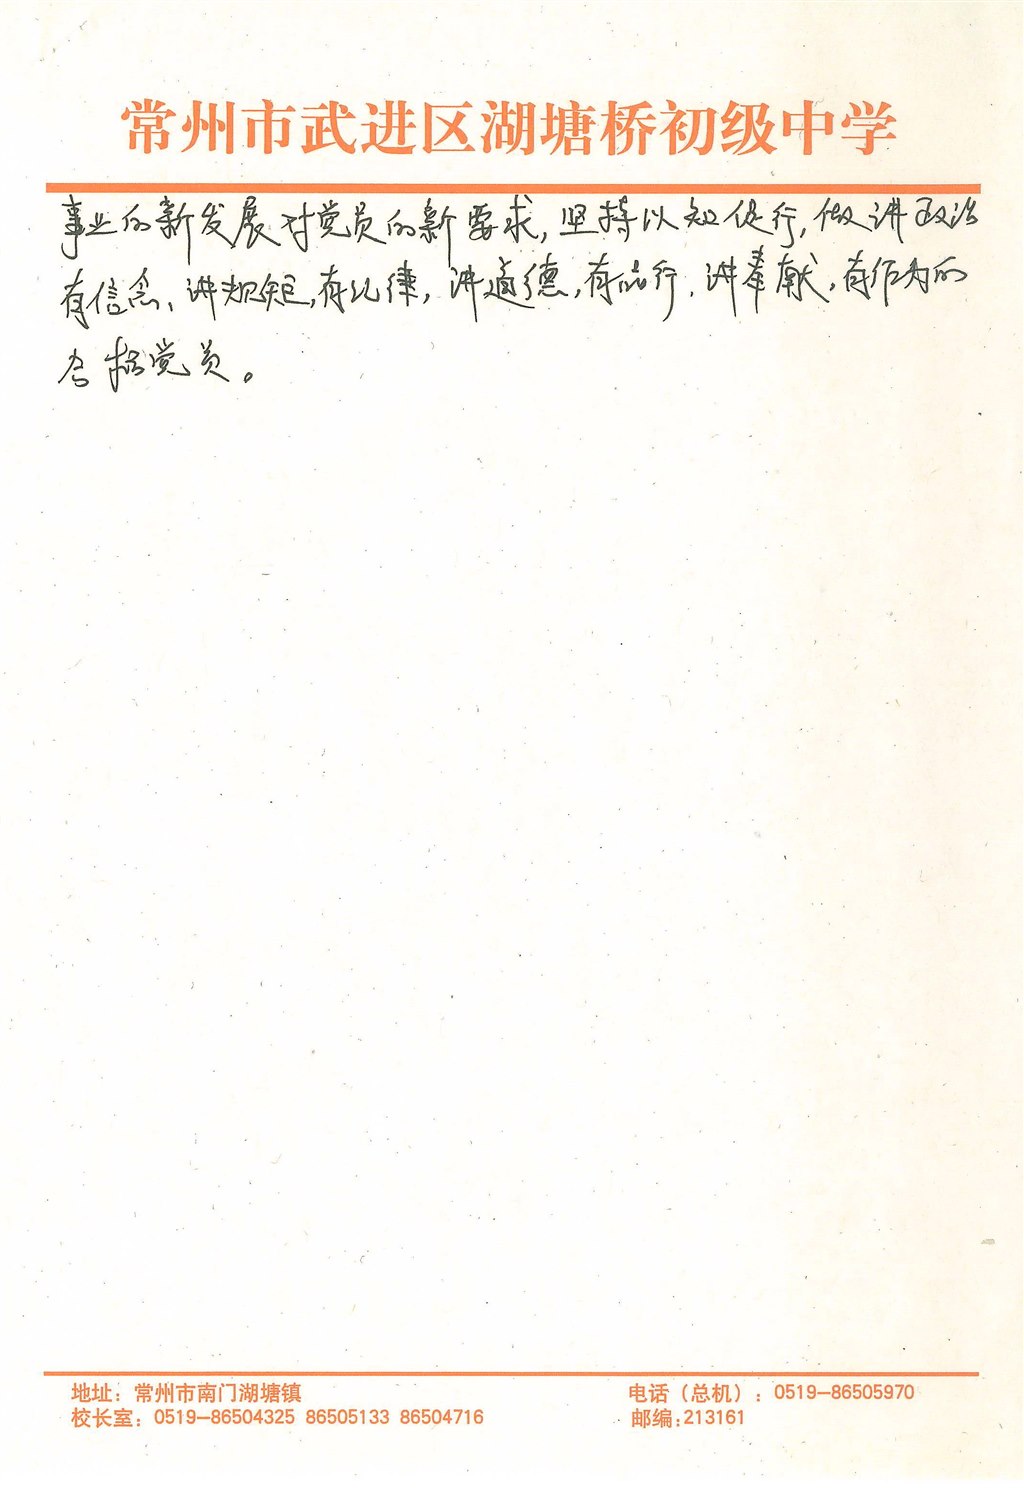 常州市武进区湖塘桥初级中学
事业的新发展对党员的新要求,坚持以知促行,做讲政治
有信念、讲规矩,有纪律,讲道德,有品行、讲奉献,有作为的
合格党员。
地址：常州市南门湖塘镇 电话（总机）：0519—86505970
校长室：0519—86504325 86505133 86504716 邮编:213161